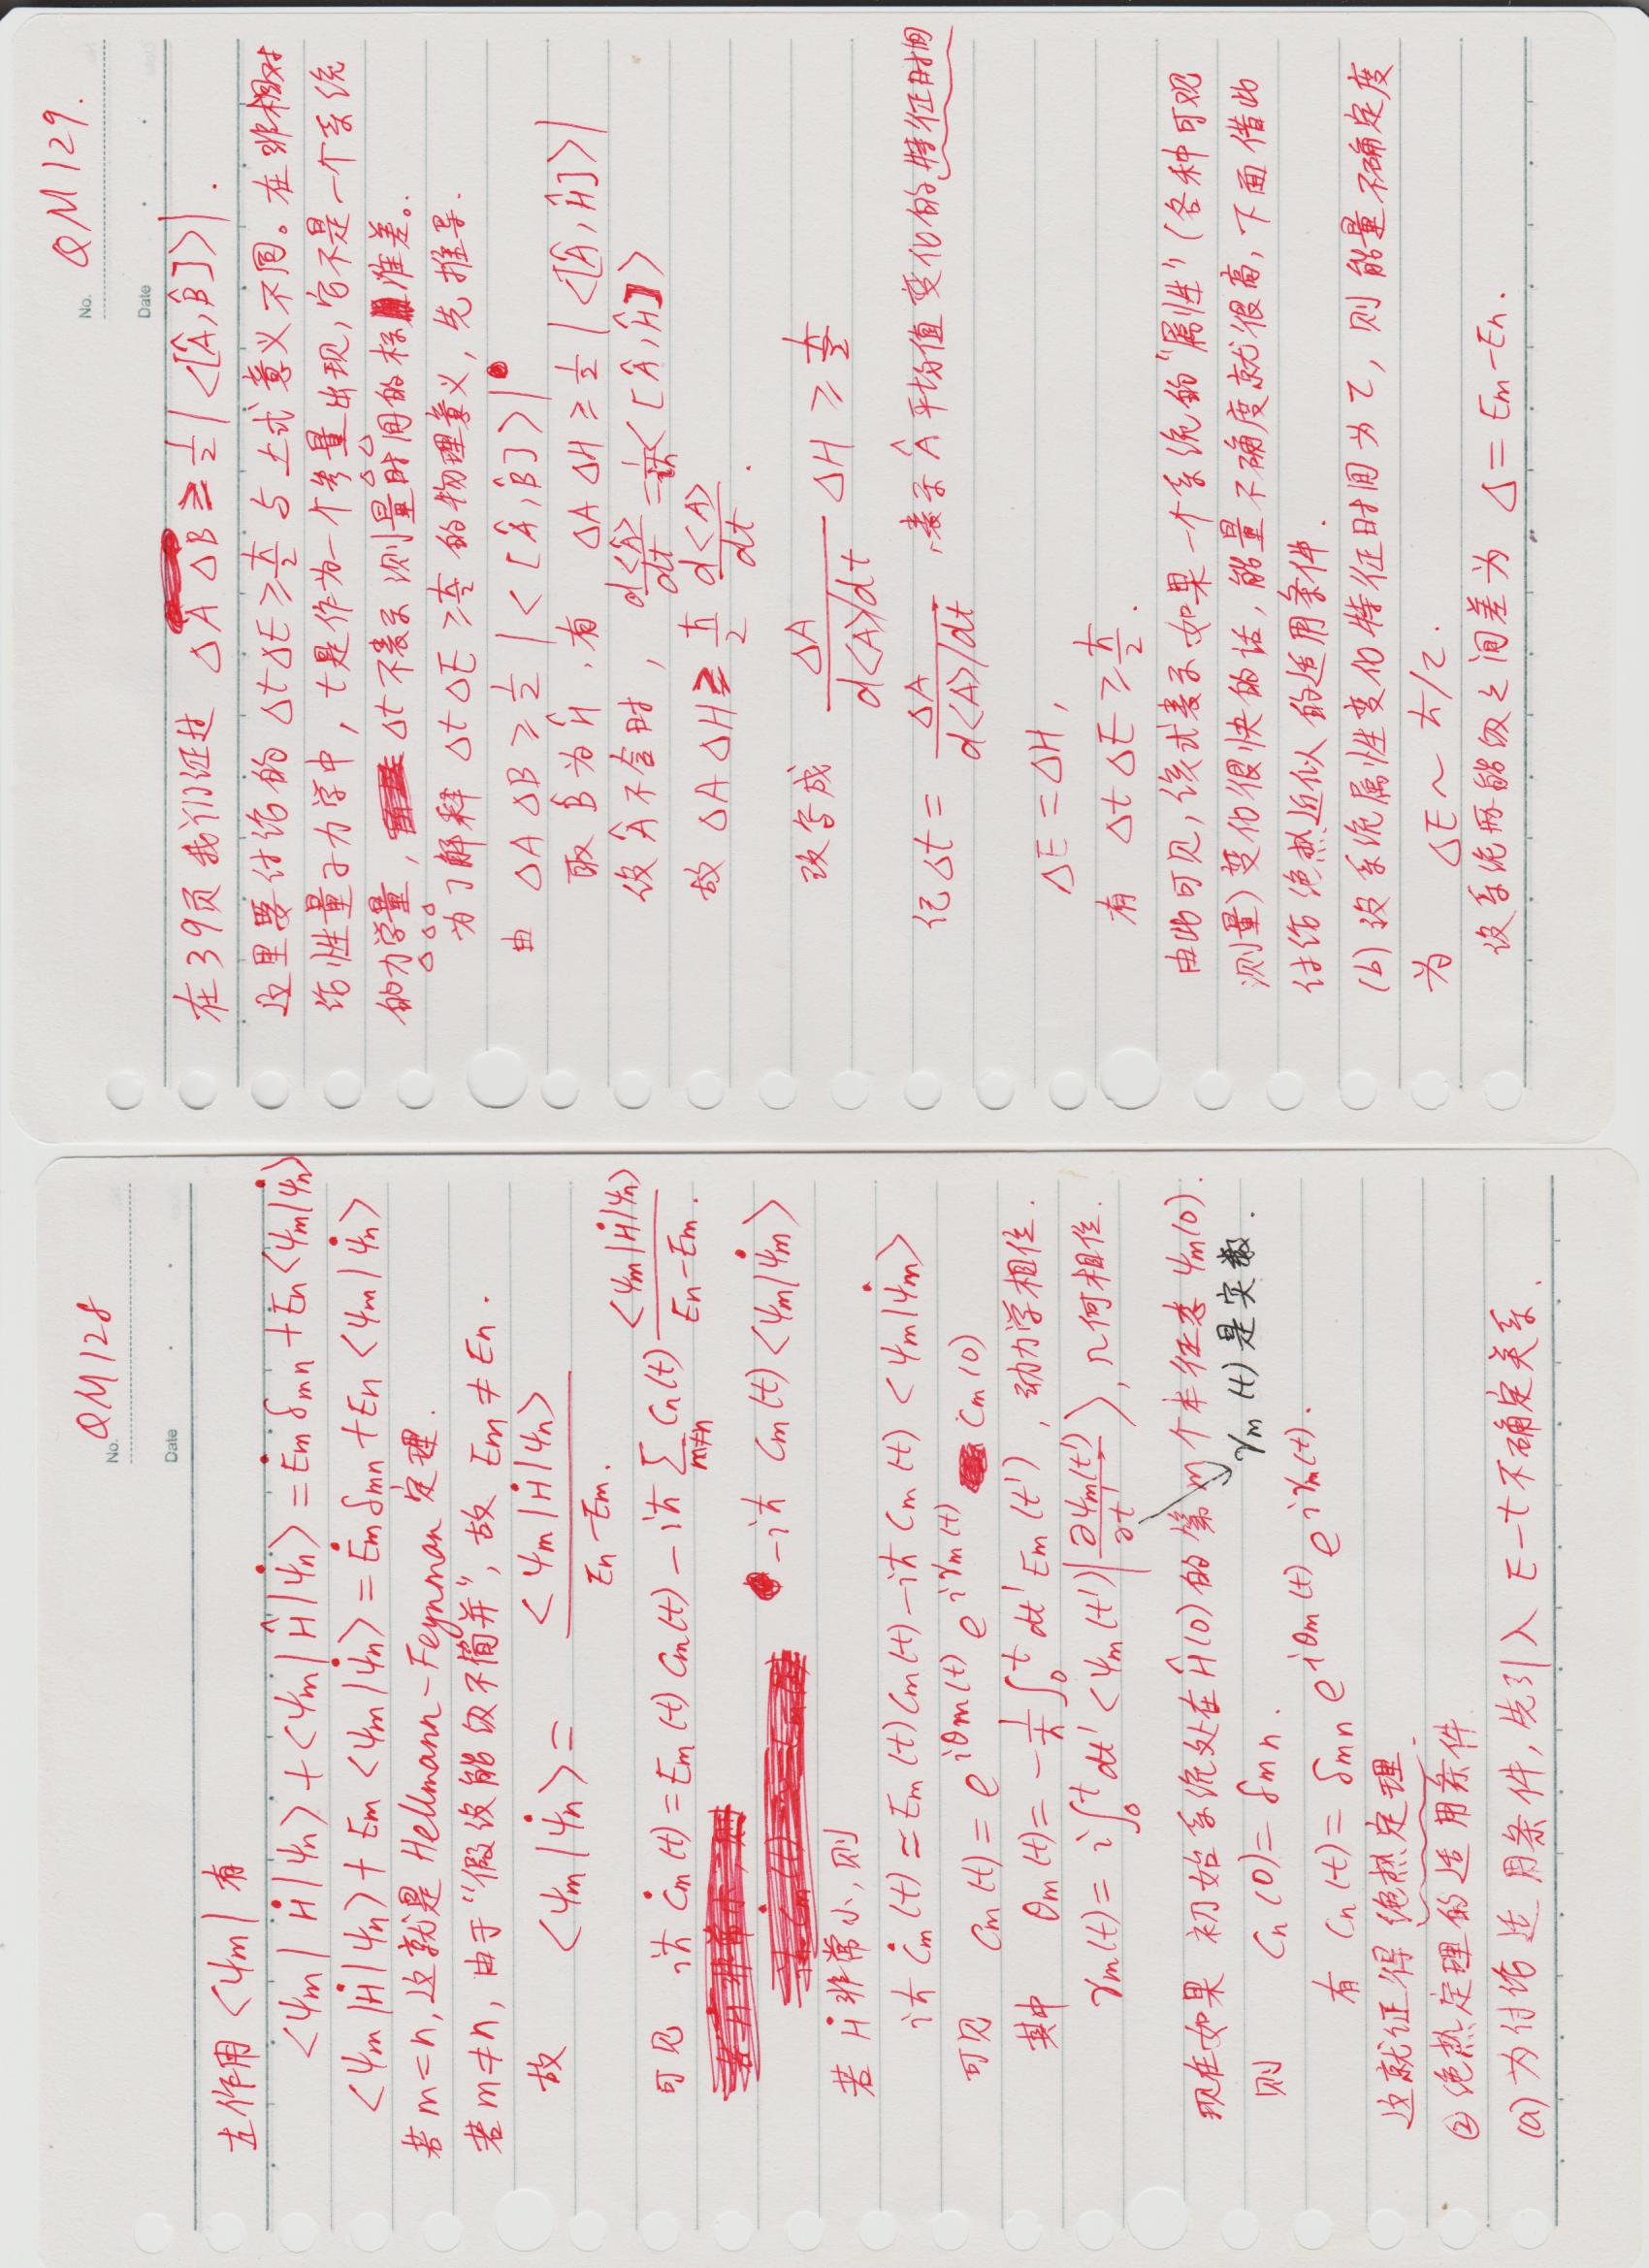 No. QM128
Date
左作用 <ψm| 有
<ψm|Ḣ|ψn> + <ψm|Ĥ|ψ̇n> = Ėm δmn + En<ψm|ψ̇n>
<ψm|Ḣ|ψn> + Em <ψm|ψ̇n> = Ėm δmn + En <ψm|ψ̇n>
若 m=n, 这就是 Hellmann-Feynman 定理.
若 m≠n, 由于“假设能级不简并”, 故 Em ≠ En.
故 <ψm|ψ̇n> = <ψm|Ḣ|ψn> / En-Em.
可见 iħ ċm(t) = Em(t) cm(t) - iħ ∑m≠n cn(t) <ψm|Ḣ|ψn> / En-Em.
-iħ cm(t) <ψm|ψ̇m>
若 Ḣ 非常小, 则
iħ ċm(t) ≃ Em(t) cm(t) - iħ cm(t) <ψm|ψ̇m>
可见 cm(t) = e^{iθm(t)} e^{iγm(t)} cm(0)
其中 θm(t) = -1/ħ ∫₀ᵗ dt' Em(t'), 动力学相位.
γm(t) = i∫₀ᵗ dt' <ψm(t')|∂ψm(t')/∂t'>, 几何相位.
现在如果 初始系统处在 Ĥ(0) 的第 m 个本征态 ψm(0).
γm(t) 是实数.
则 cn(0) = δmn.
有 cn(t) = δmn e^{iθm(t)} e^{iγm(t)}.
这就证得绝热定理.
② 绝热定理的适用条件
(a) 为讨论适用条件, 先引入 E-t 不确定关系.
No. QM129.
Date
在39页我们证过 ΔA ΔB ≥ 1/2 |<[Â, B̂]>|.
这里要讨论的 ΔtΔE ≥ ħ/2 与上式意义不同。在非相对
论性量子力学中, t是作为一个参量出现, 它不是一个系统
的力学量, Δt 不表示 测量时间的标准差。
为了解释 ΔtΔE ≥ ħ/2 的物理意义, 先推导.
由 ΔA ΔB ≥ 1/2 |<[Â, B̂]>|
取 B̂ 为 Ĥ, 有 ΔA ΔH ≥ 1/2 |<[Â, Ĥ]>|
设 Â 不含时, d<Â>/dt = 1/iħ <[Â, Ĥ]>
故 ΔA ΔH ≥ ħ/2 d<A>/dt.
改写成 ΔA / d<A>/dt ΔH ≥ ħ/2
记 Δt = ΔA / d<A>/dt, 表示 Â 平均值变化的特征时间
ΔE = ΔH,
有 Δt ΔE ≥ ħ/2.
由此可见, 该式表示如果一个系统的“属性”(各种可观
测量) 变化很快的话, 能量不确度就很高, 下面借此
讨论绝热近似的适用条件.
(b) 设系统属性变化特征时间为 τ, 则能量不确定度
为 ΔE ~ ħ/τ.
设系统两能级之间差为 Δ = Em-En.